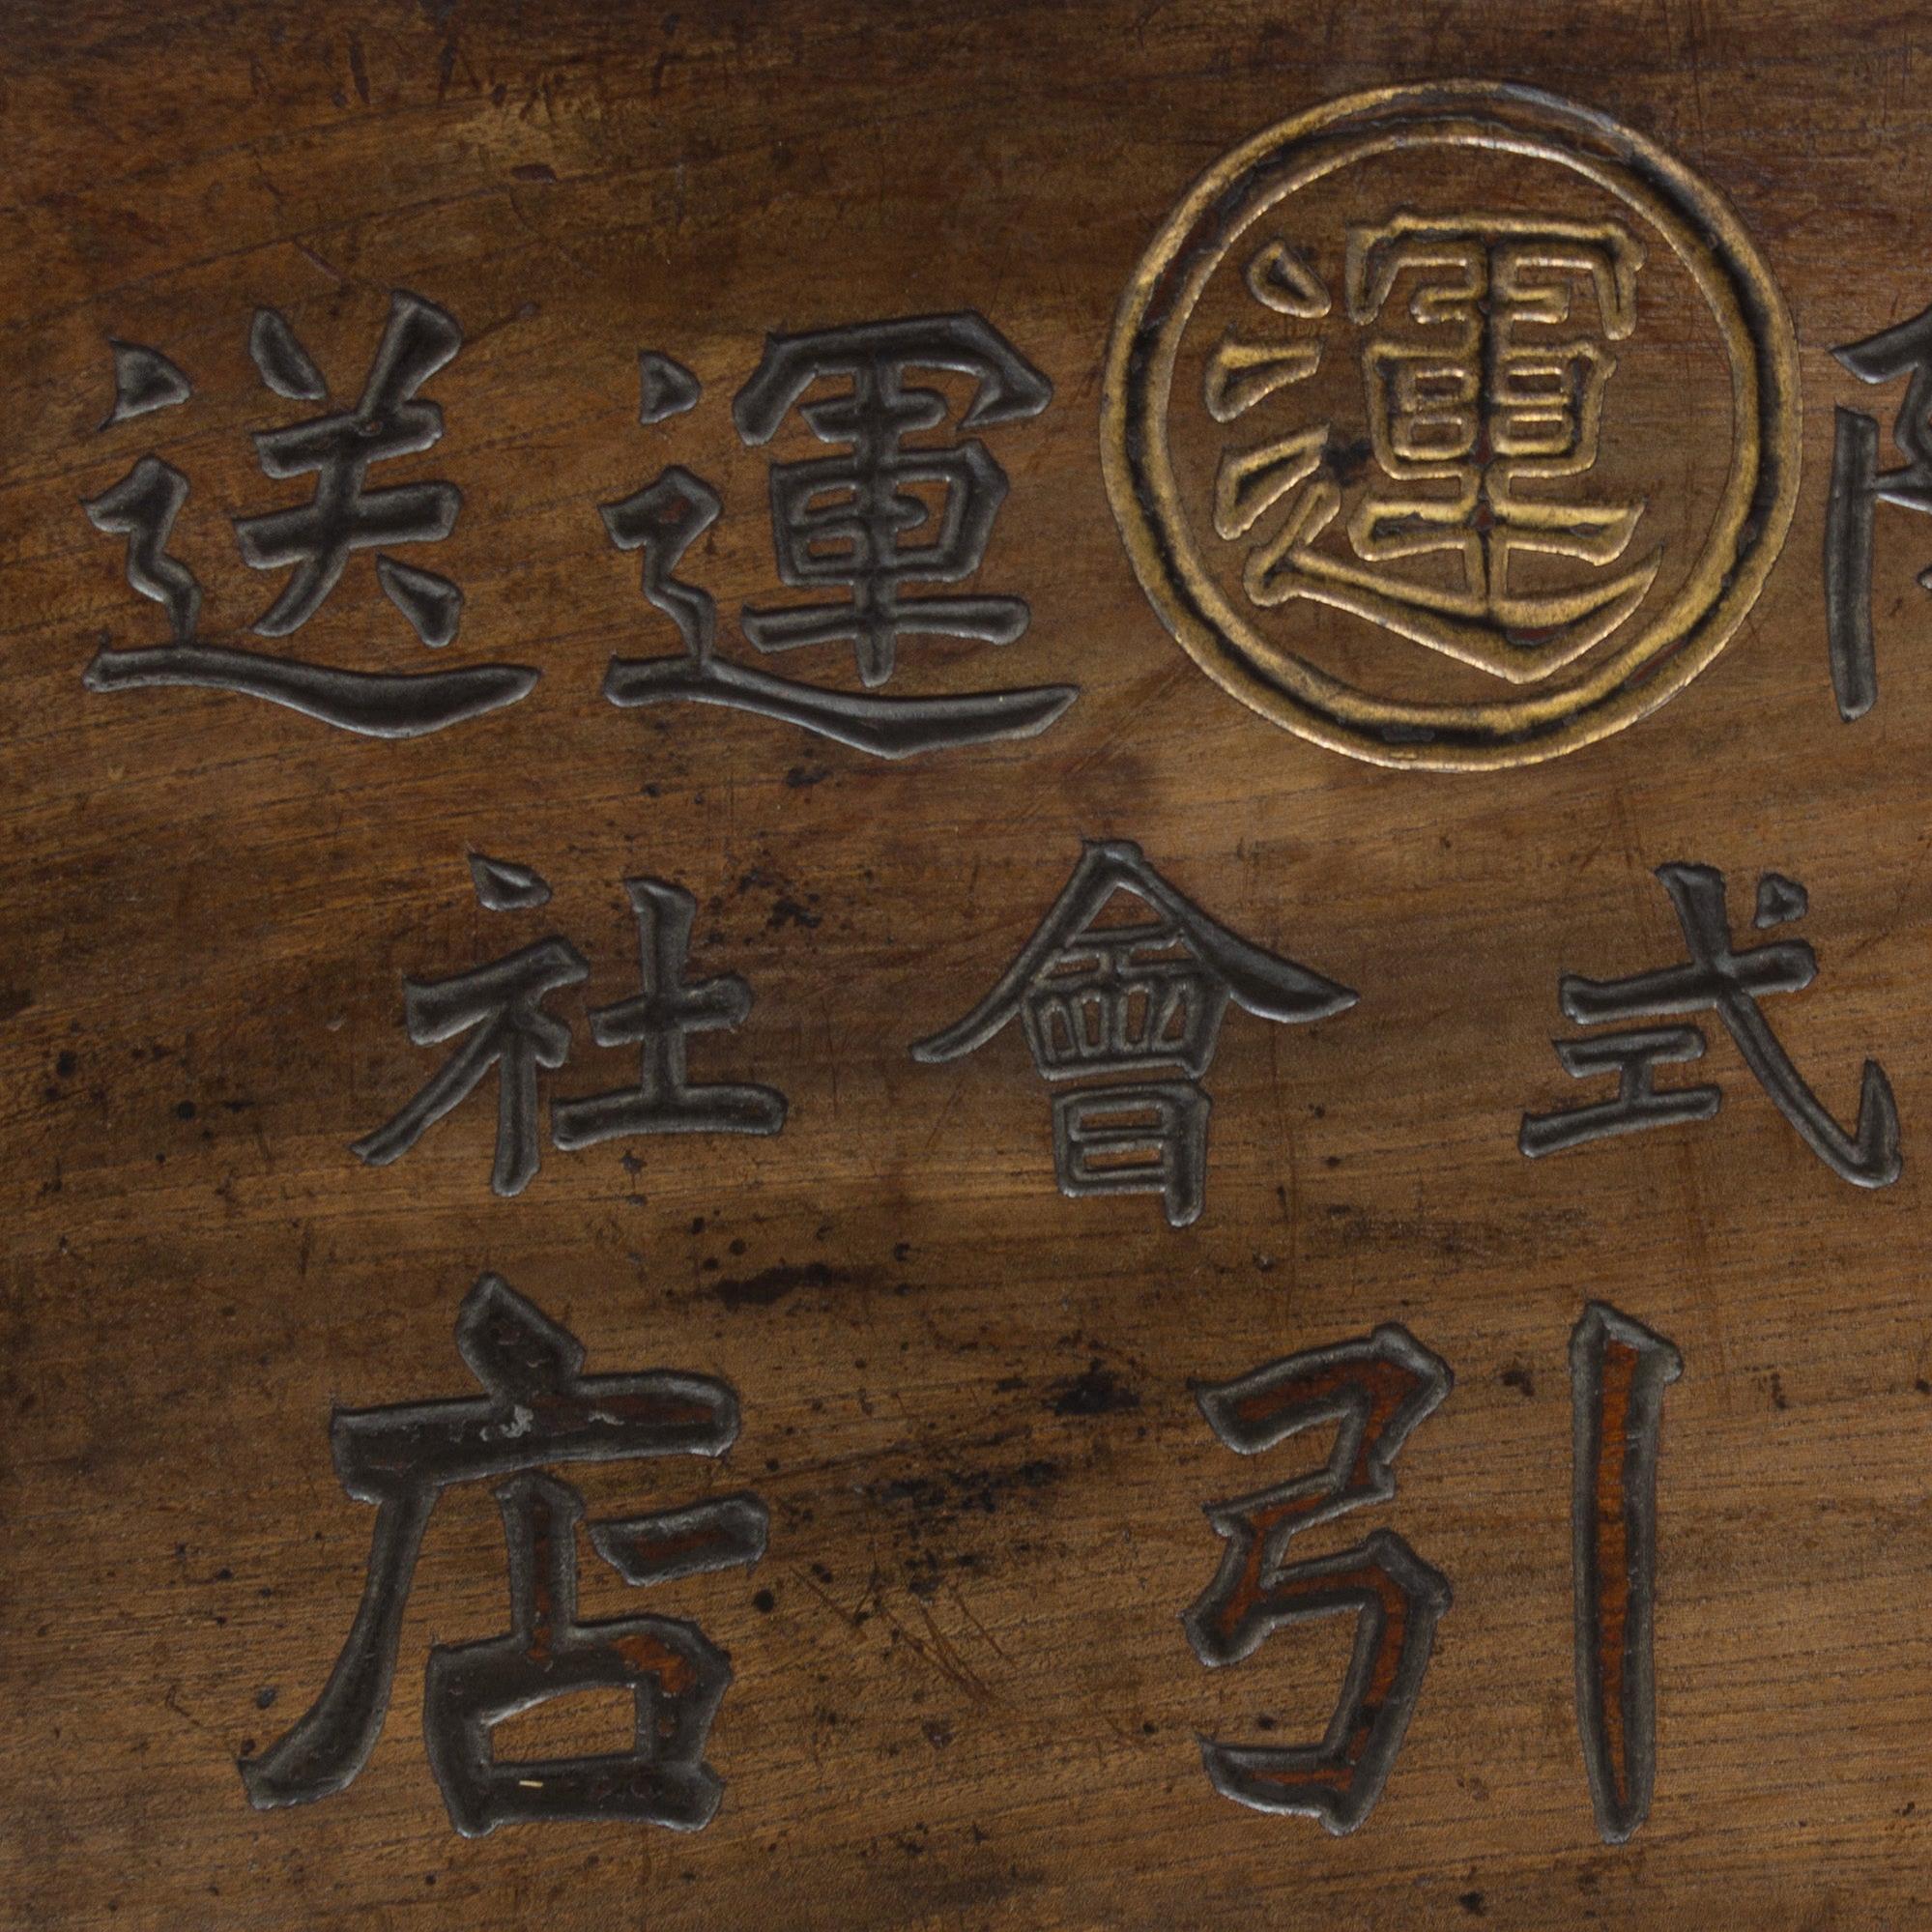 運運送
式會社
引店